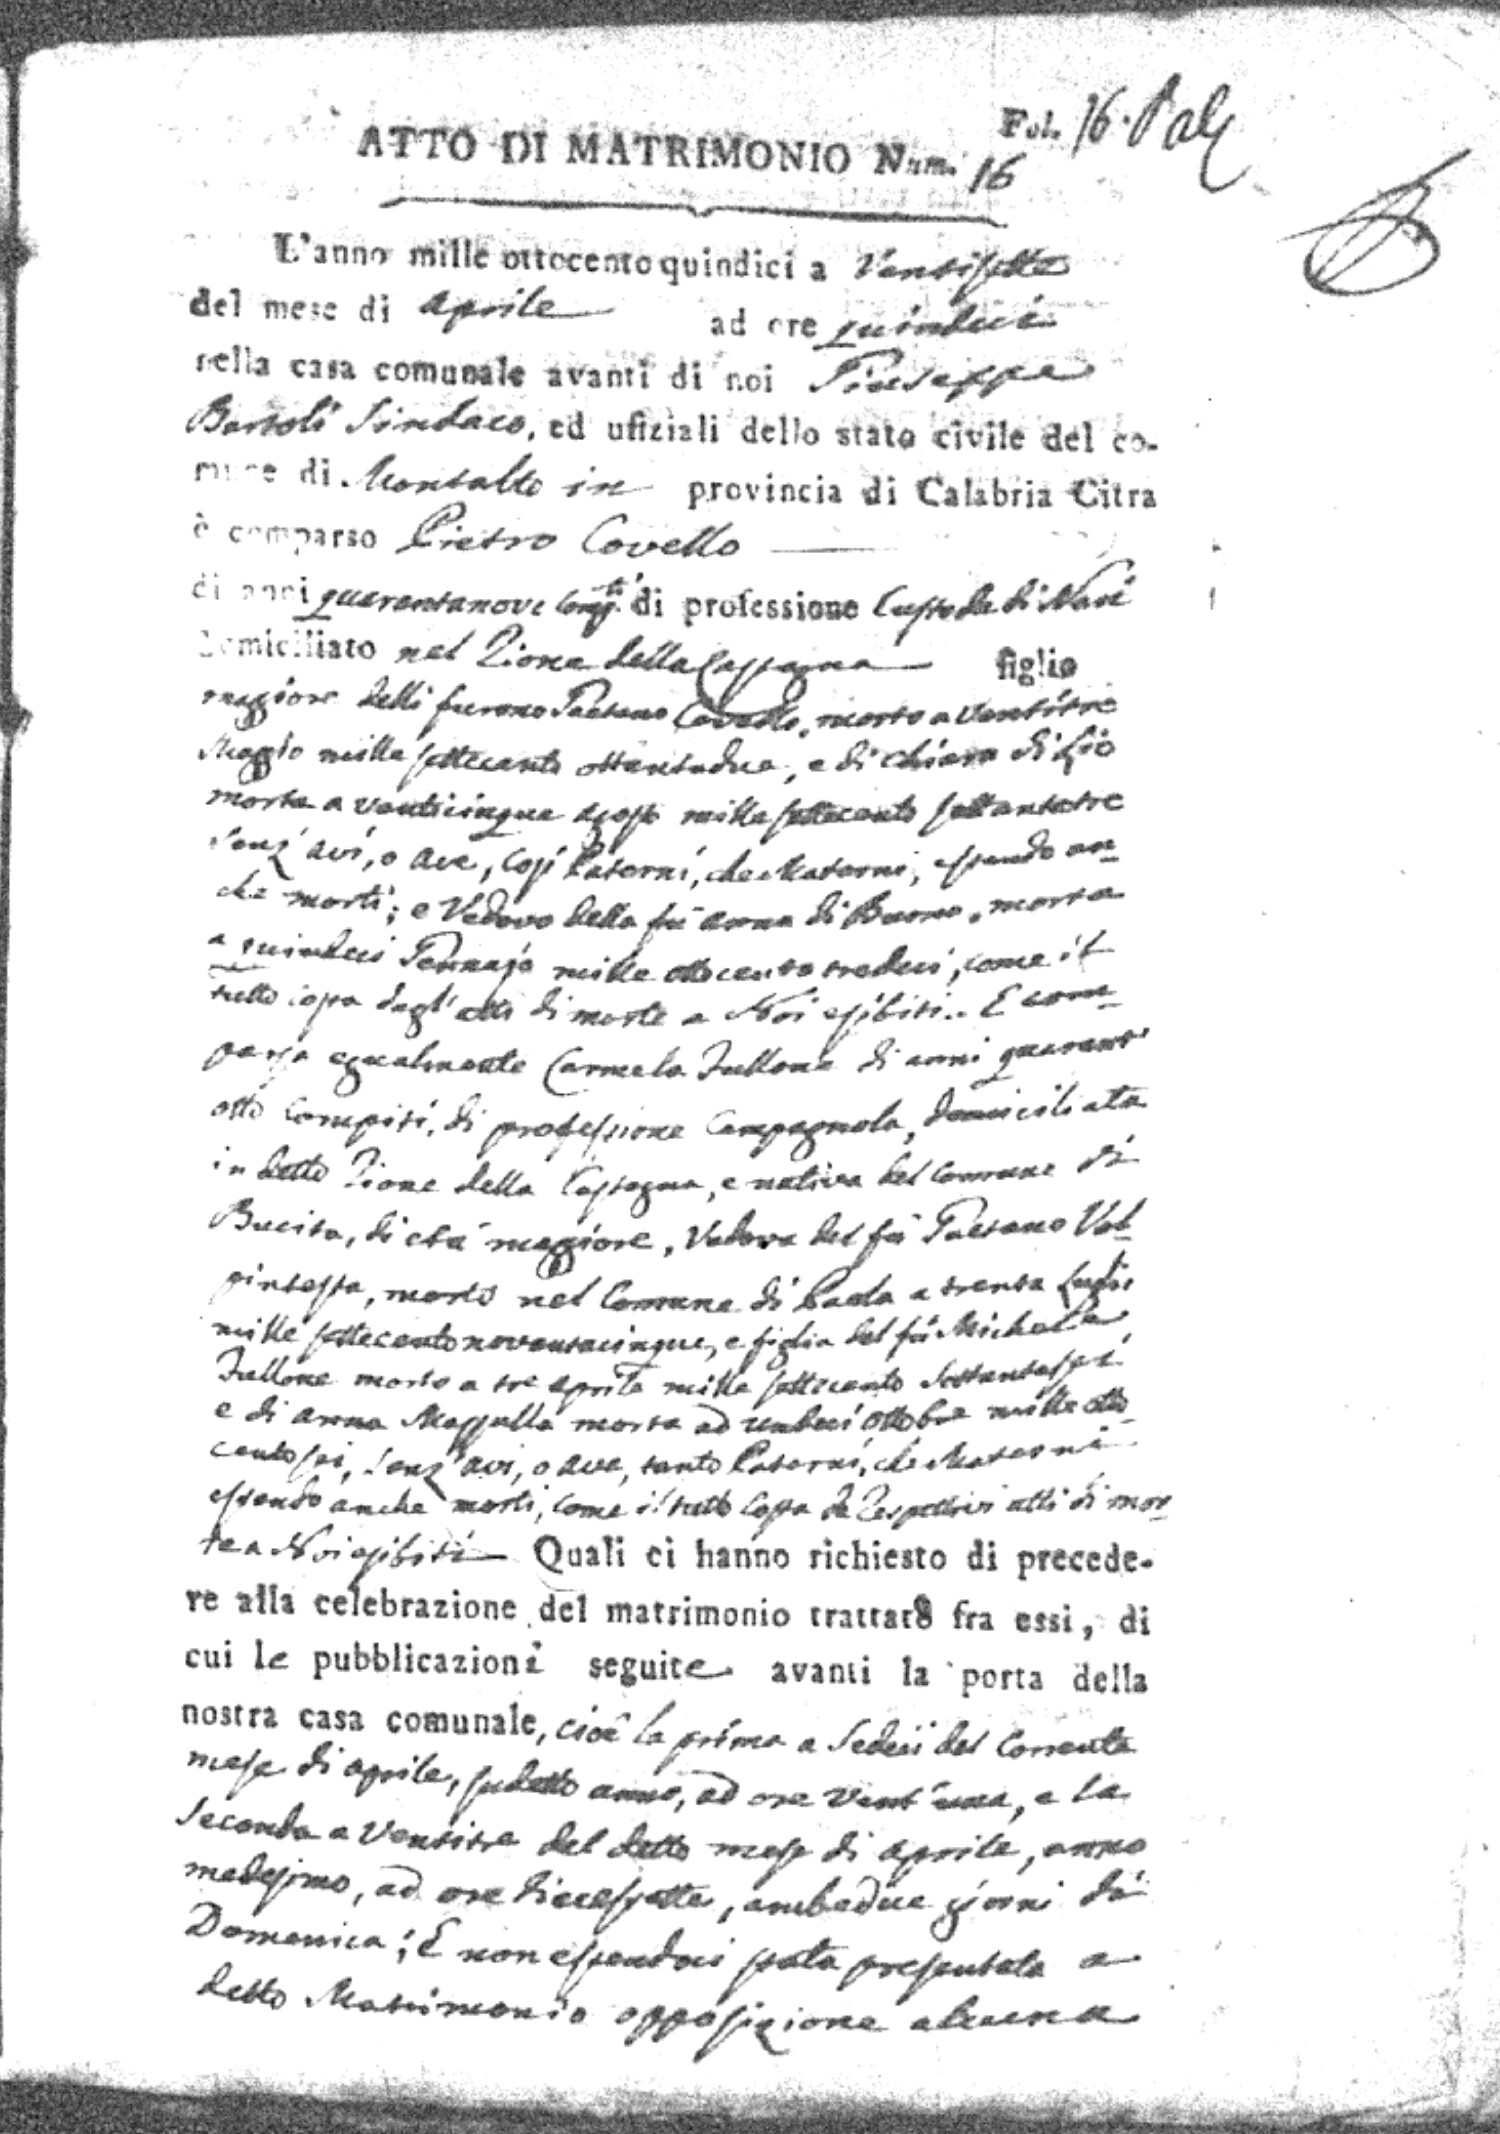 Fol. 16.
ATTO DI MATRIMONIO Num. 16
L'anno mille ottocento quindici a Ventisette
del mese di Aprile ad ore quindici
nella casa comunale avanti di noi Giuseppe
Bartoli Sindaco, ed ufiziali dello stato civile del co-
mune di Montalto in provincia di Calabria Citra
è comparso Pietro Covello
di anni quarantanove comp.ti di professione Custode di
domiciliato nel Rione della figlio
maggiore delli furono Gaetano Covello, morto a ventitre
Maggio mille settecento ottantadue, e di Chiara di Lio
morta a venticinque agosto mille settecento settantatre
senz'avi, o ave, così Paterni, che Materni, essendo an-
che morti; e Vedovo della fù Anna di Buono, morta
a quindici Gennajo mille ottocento tredici, come il
tutto costa dagl'atti di morte a Noi esibiti. E com-
parsa egualmente Carmela Fullone di anni quarant'
otto compiti, di professione Campagnola, domiciliata
in detto Rione della e nativa del Comune di
Bucita, di età maggiore, Vedova del fù Gaetano Val-
pintesta, morto nel Comune di Paola a trenta Luglio
mille settecento novantacinque, e figlia del fù Michele
Fullone morto a tre Aprile mille settecento settantasei
e di Anna Mazzulla morta ad undici Ottobre mille otto-
cento sei, senz'avi, o ave, tanto Paterni, che Materni
essendo anche morti, come il tutto costa da rispettivi atti di mor-
te a Noi esibiti Quali ci hanno richiesto di precede-
re alla celebrazione del matrimonio trattato fra essi, di
cui le pubblicazioni seguite avanti la porta della
nostra casa comunale, cioè la prima a Sedici del corrente
mese di Aprile, sudetto anno, ad ore vent'una, e la
seconda a Ventitre del detto mese di Aprile, anno
medesimo, ad ore diecessette, ambedue giorni di
Domenica; E non essendoci stata presentata a
detto Matrimonio opposizione alcuna